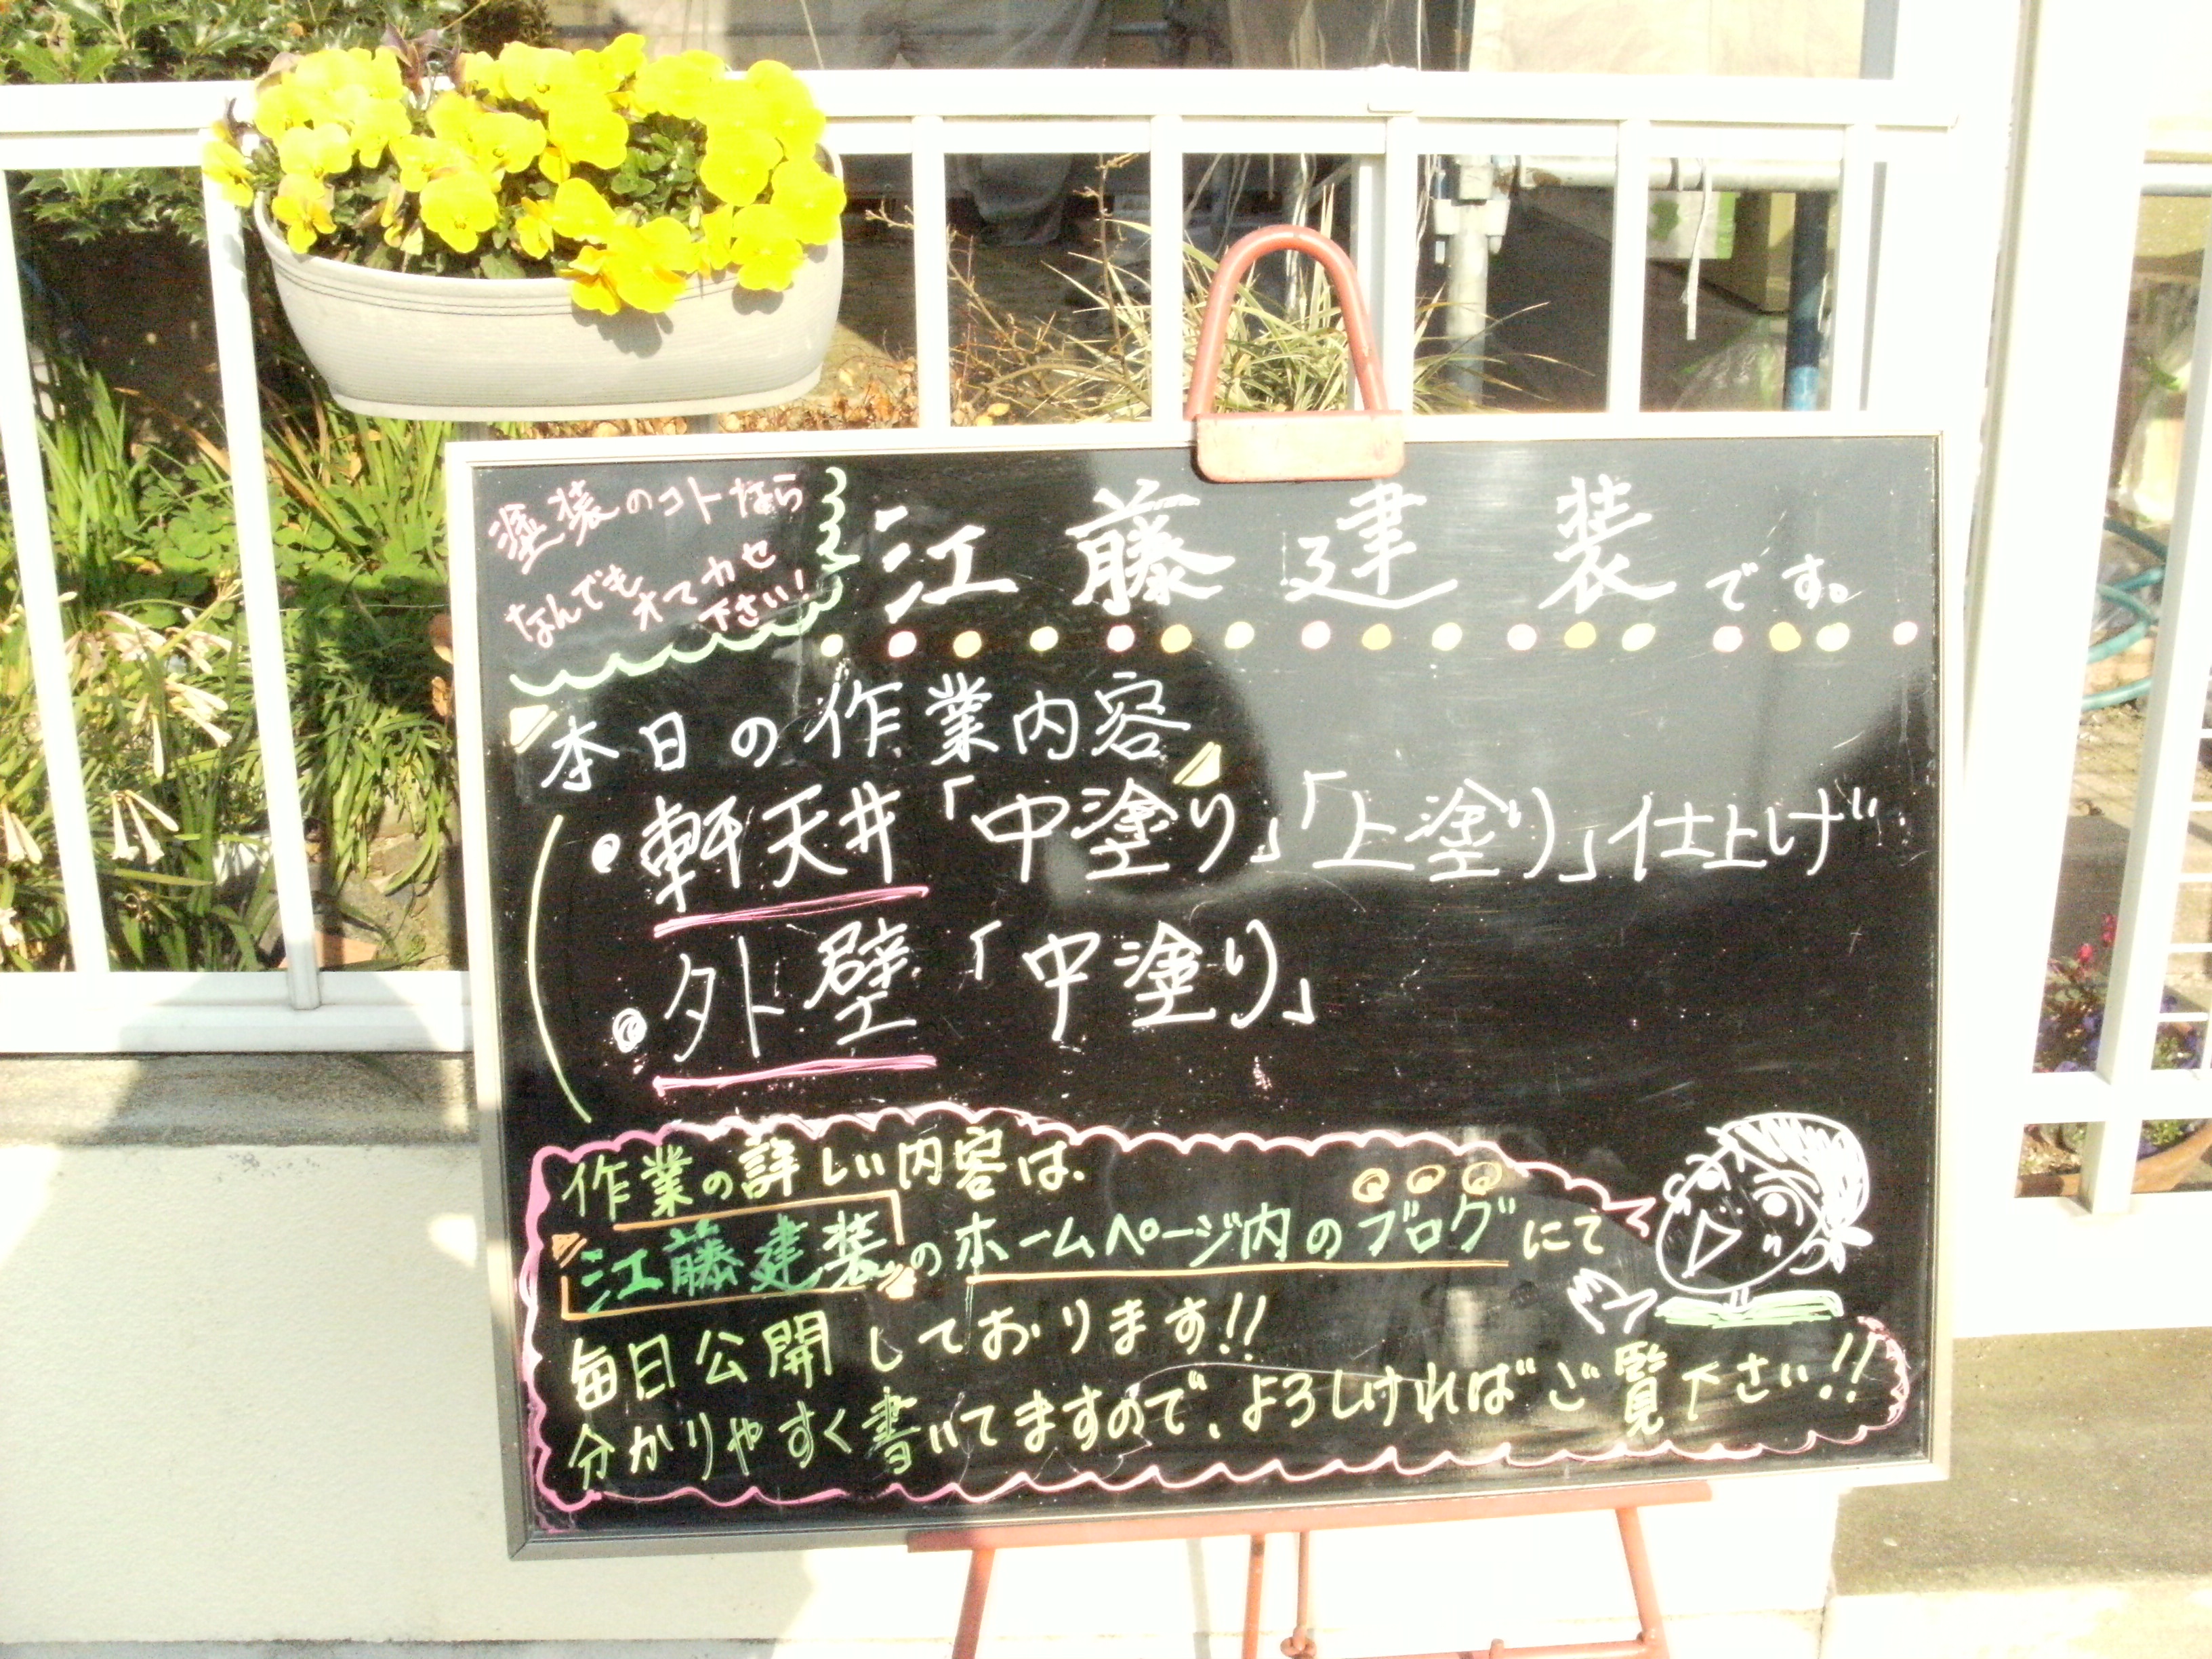 塗装のコトなら
なんでもオマカセ
下さい!
江藤建装です。
本日の作業内容
・軒天井「中塗り」「上塗り」仕上げ
・外壁「中塗り」
作業の詳しい内容は、
江藤建装のホームページ内のブログにて
毎日公開しております!!
分かりやすく書いてますので、よろしければご覧下さい!!